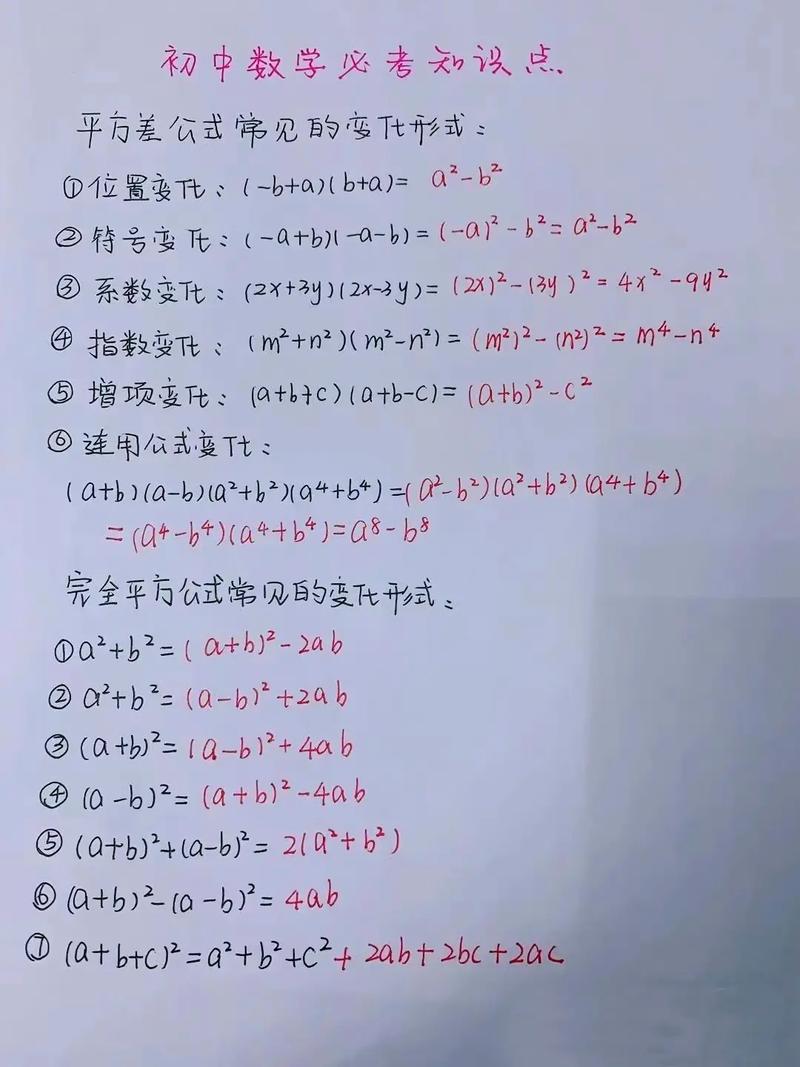 初中数学必考知识点
平方差公式常见的变化形式:
①位置变化:(-b+a)(b+a)= a²-b²
②符号变化:(-a+b)(-a-b)=(-a)²-b²=a²-b²
③系数变化:(2x+3y)(2x-3y)=(2x)²-(3y)²=4x²-9y²
④指数变化:(m²+n²)(m²-n²)=(m²)²-(n²)²=m⁴-n⁴
⑤增项变化:(a+b+c)(a+b-c)=(a+b)²-c²
⑥连用公式变化:
(a+b)(a-b)(a²+b²)(a⁴+b⁴)=(a²-b²)(a²+b²)(a⁴+b⁴)
=(a⁴-b⁴)(a⁴+b⁴)=a⁸-b⁸
完全平方公式常见的变化形式:
①a²+b²=(a+b)²-2ab
②a²+b²=(a-b)²+2ab
③(a+b)²=(a-b)²+4ab
④(a-b)²=(a+b)²-4ab
⑤(a+b)²+(a-b)²=2(a²+b²)
⑥(a+b)²-(a-b)²=4ab
⑦(a+b+c)²=a²+b²+c²+2ab+2bc+2ac